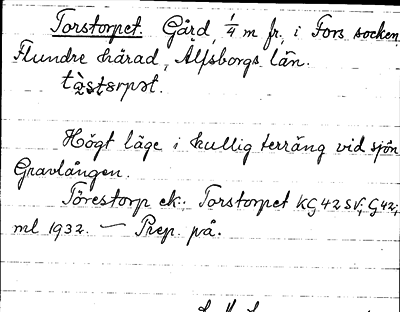 Torstorpet. Gård, 1/4 m fr., i Fors socken,
Flundre härad, Älfsborgs län.
Högt läge i kullig terräng vid sjön
Gravlången.
Törestorp ek. Torstorpet KG 42 SV, G 42,
ml 1932. — Prep. på.